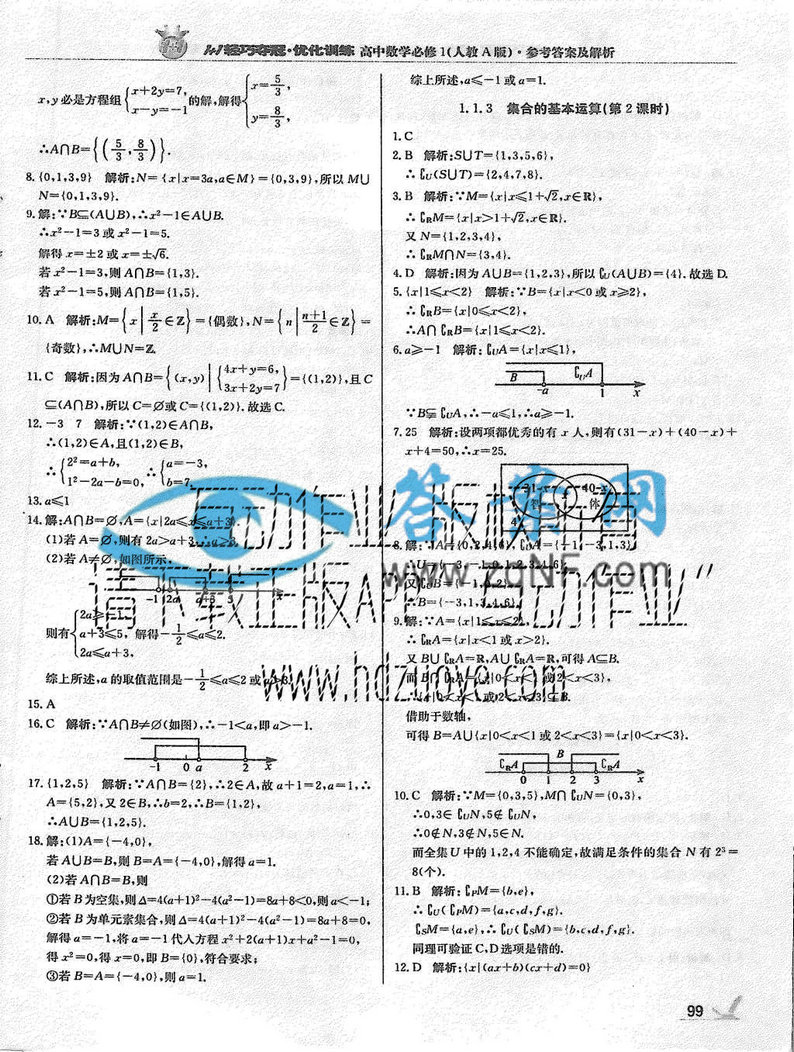 1+1轻巧夺冠·优化训练 高中数学必修1(人教A版)·参考答案及解析
x,y必是方程组{x+2y=7,x-y=-1的解,解得{x=5/3,y=8/3,
∴A∩B={(5/3,8/3)}.
8.{0,1,3,9} 解析:N={x|x=3a,a∈M}={0,3,9},所以M∪
N={0,1,3,9}.
9.解:∵B⊆(A∪B),∴x²-1∈A∪B.
∴x²-1=3或x²-1=5.
解得x=±2或x=±√6.
若x²-1=3,则A∩B={1,3}.
若x²-1=5,则A∩B={1,5}.
10.A 解析:M={x|x/2∈Z}={偶数},N={n|(n+1)/2∈Z}=
{奇数},∴M∪N=Z.
11.C 解析:因为A∩B={(x,y)|{4x+y=6,3x+2y=7}={(1,2)},且C
⊆(A∩B),所以C=∅或C={(1,2)}.故选C.
12.-3 7 解析:∵(1,2)∈A∩B,
∴(1,2)∈A,且(1,2)∈B,
∴{2²=a+b,1²-2a-b=0,∴{a=-3,b=7.
13.a≤1
14.解:A∩B=∅,A={x|2a≤x≤a+3}.
(1)若A=∅,则有2a>a+3,∴a>3.
(2)若A≠∅,如图所示,
-1 2a a+3 5 x
则有{2a≥-1,a+3≤5,2a≤a+3,解得-1/2≤a≤2.
综上所述,a的取值范围是-1/2≤a≤2或a>3.
15.A
16.C 解析:∵A∩B≠∅(如图),∴-1<a,即a>-1.
-1 0 a 2 x
17.{1,2,5} 解析:∵A∩B={2},∴2∈A,故a+1=2,a=1,∴
A={5,2},又2∈B,∴b=2,∴B={1,2},
∴A∪B={1,2,5}.
18.解:(1)A={-4,0},
若A∪B=B,则B=A={-4,0},解得a=1.
(2)若A∩B=B,则
①若B为空集,则Δ=4(a+1)²-4(a²-1)=8a+8<0,则a<-1;
②若B为单元素集合,则Δ=4(a+1)²-4(a²-1)=8a+8=0,
解得a=-1,将a=-1代入方程x²+2(a+1)x+a²-1=0,
得x²=0,得x=0,即B={0},符合要求;
③若B=A={-4,0},则a=1.
综上所述,a≤-1或a=1.
1.1.3 集合的基本运算(第2课时)
1.C
2.B 解析:S∪T={1,3,5,6},
∴∁U(S∪T)={2,4,7,8}.
3.B 解析:∵M={x|x≤1+√2,x∈R},
∴∁RM={x|x>1+√2,x∈R}.
又N={1,2,3,4},
∴∁RM∩N={3,4}.
4.D 解析:因为A∪B={1,2,3},所以∁U(A∪B)={4}.故选D.
5.{x|1≤x<2} 解析:∵B={x|x<0或x≥2},
∴∁RB={x|0≤x<2},
∴A∩∁RB={x|1≤x<2}.
6.a≥-1 解析:∁UA={x|x≤1},
B ∁UA
-a 1 x
∵B⊆∁UA,∴-a≤1,∴a≥-1.
7.25 解析:设两项都优秀的有x人,则有(31-x)+(40-x)+
x+4=50,∴x=25.
31-x x 40-x
体
4
8.解:∵A={0,2,4,6},∁UA={-1,-3,1,3},
∴B={-3,1,3,4,6}.
9.解:∵A={x|1≤x≤2},
∴∁RA={x|x<1或x>2}.
又B∪∁RA=R,A∪∁RA=R,可得A⊆B.
而B∩∁RA={x|0<x<1或2<x<3},
∴{x|0<x<1或2<x<3}⊆B.
借助于数轴,
可得B=A∪{x|0<x<1或2<x<3}={x|0<x<3}.
∁RA B ∁RA
0 1 2 3 x
10.C 解析:∵M={0,3,5},M∩∁UN={0,3},
∴0,3∈∁UN,5∉∁UN,
∴0∉N,3∉N,5∈N.
而全集U中的1,2,4不能确定,故满足条件的集合N有2³=
8(个).
11.B 解析:∁PM={b,e},
∴∁U(∁PM)={a,c,d,f,g}.
∁SM={a,e},∴∁U(∁SM)={b,c,d,f,g}.
同理可验证C,D选项是错的.
12.D 解析:{x|(ax+b)(cx+d)=0}
99
答案网
www.zqNF.com
www.hdzuoye.com